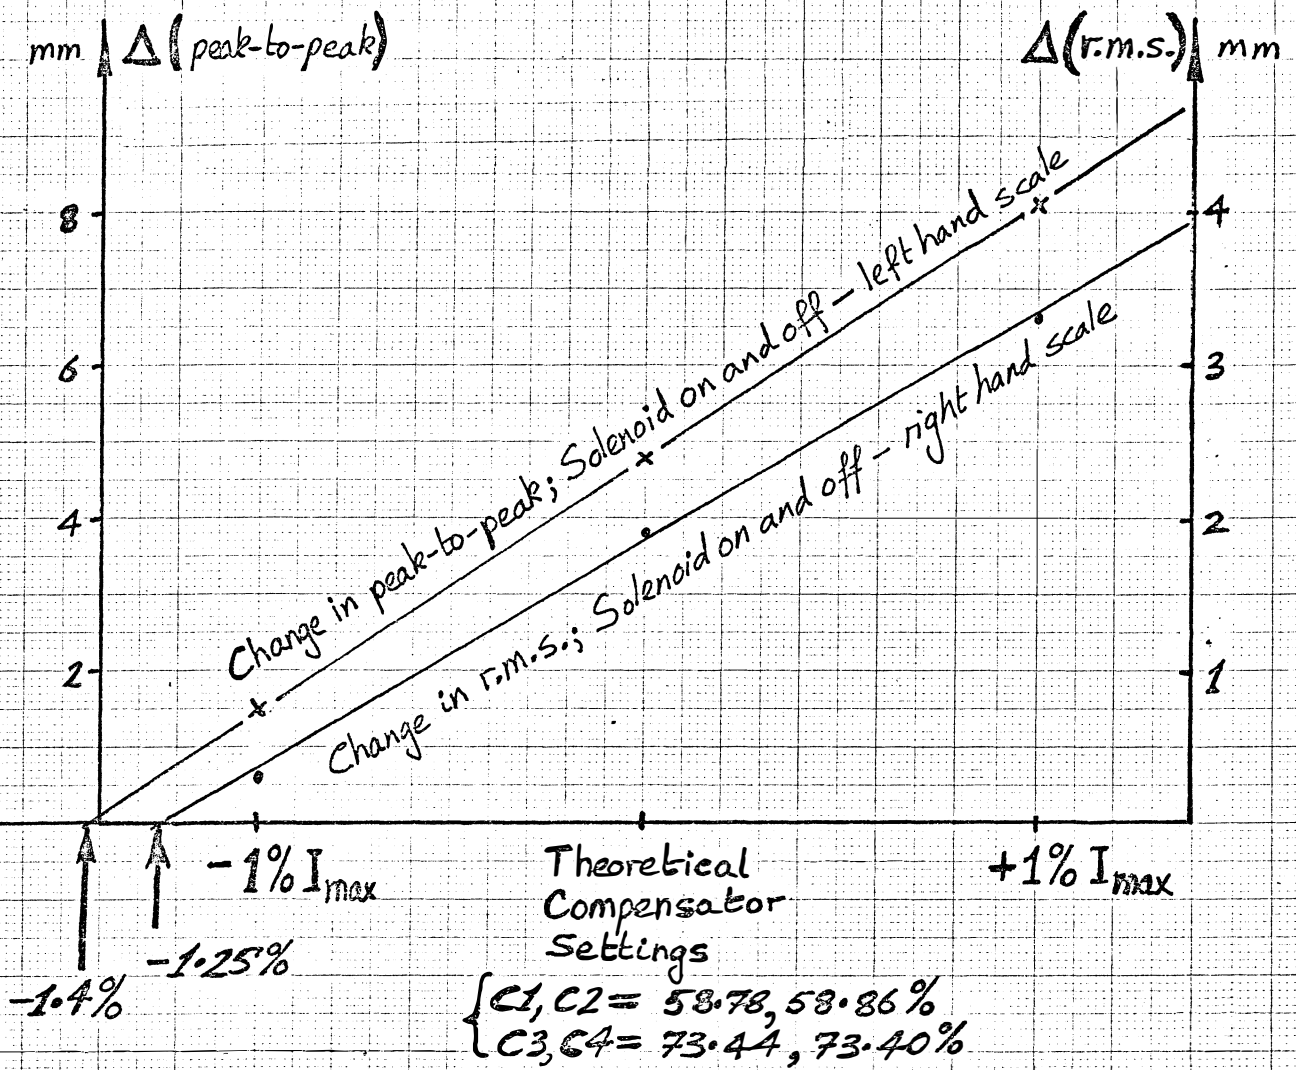 mm Δ(peak-to-peak)
Δ(r.m.s.) mm
8
6
4
2
4
3
2
1
Change in peak-to-peak; Solenoid on and off – left hand scale
Change in r.m.s.; Solenoid on and off – right hand scale
-1% Imax
Theoretical
Compensator
Settings
+1% Imax
-1.25%
-1.4%
{C1, C2 = 58.78, 58.86%
C3, C4 = 73.44, 73.40%